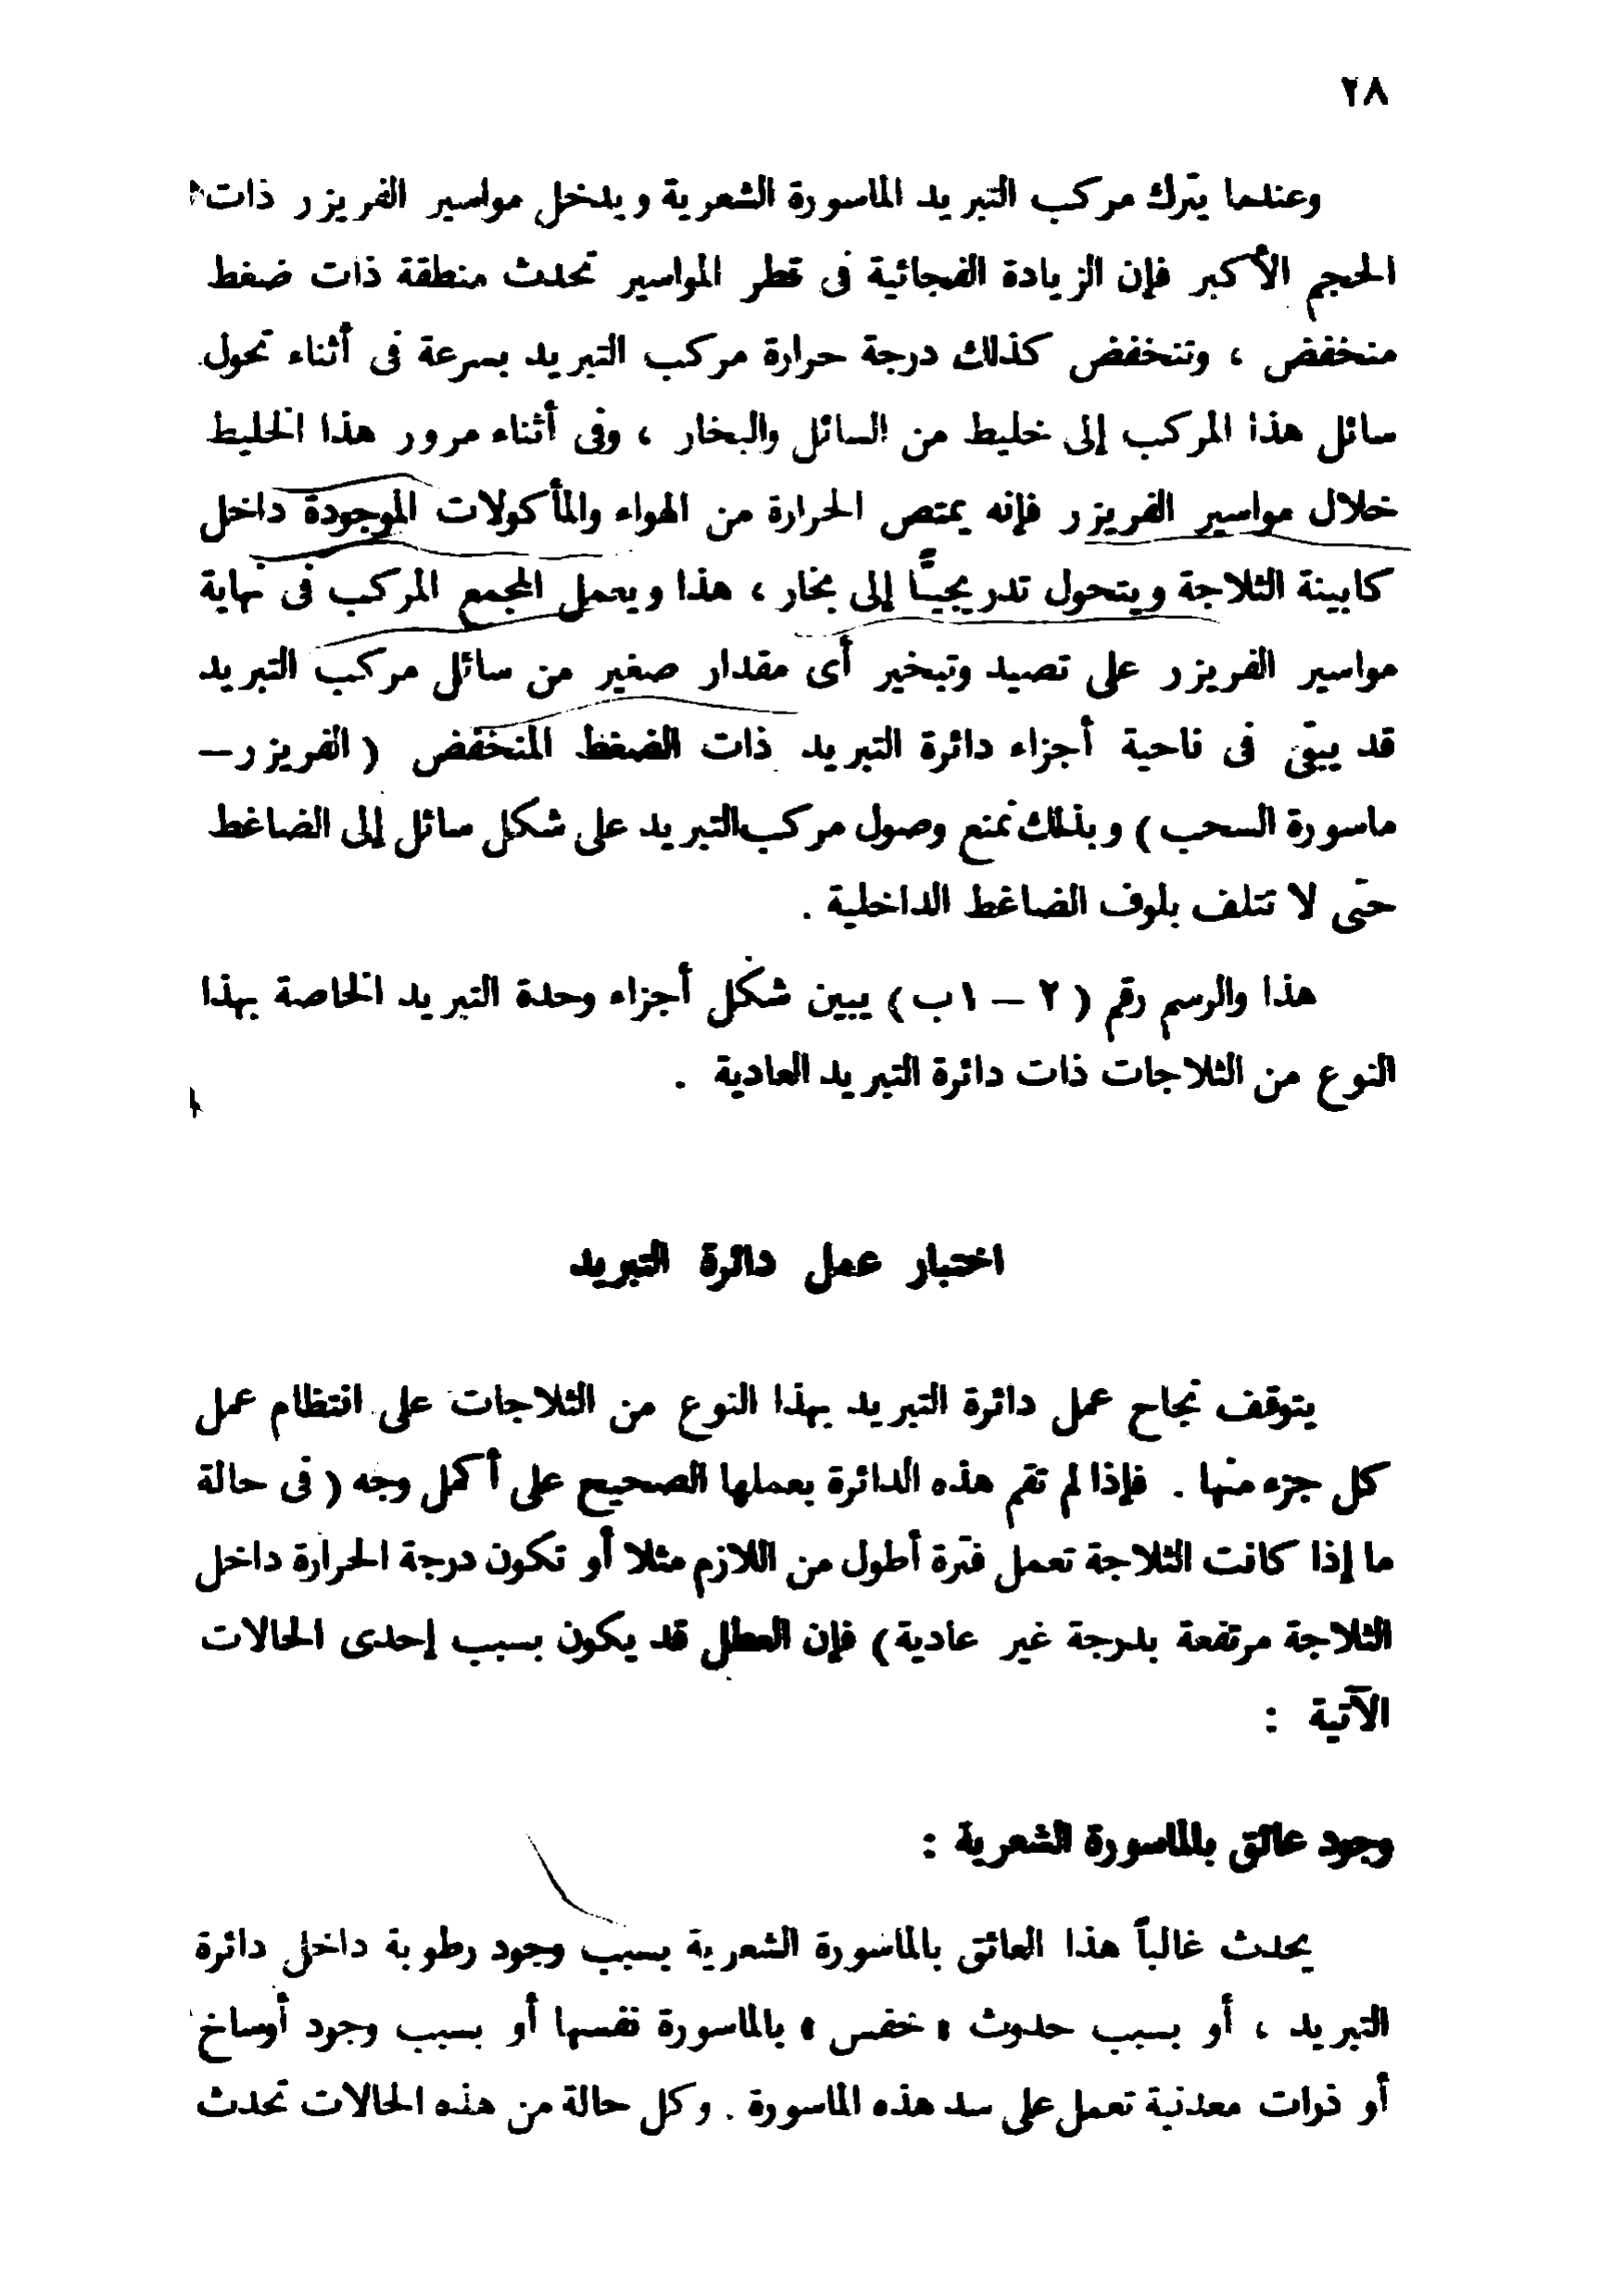 ٢٨
وعندما يترك مركب التبريد الماسورة الشعرية ويدخل مواسير الفريزر ذات
الحجم الأكبر فإن الزيادة الفجائية فى قطر المواسير تحدث منطقة ذات ضغط
منخفض ، وتنخفض كذلك درجة حرارة مركب التبريد بسرعة فى أثناء تحول
سائل هذا المركب إلى خليط من السائل والبخار ، وفى أثناء مرور هذا الخليط
خلال مواسير الفريزر فإنه يمتص الحرارة من الهواء والمأكولات الموجودة داخل
كابينة الثلاجة ويتحول تدريجيًّا إلى بخار ، هذا ويعمل المجمع المركب فى نهاية
مواسير الفريزر على تصيد وتبخير أى مقدار صغير من سائل مركب التبريد
قد يبقى فى ناحية أجزاء دائرة التبريد ذات الضغط المنخفض ( الفريزر –
ماسورة السحب ) وبذلك نمنع وصول مركب التبريد على شكل سائل إلى الضاغط
حتى لا تتلف بلوف الضاغط الداخلية .
هذا والرسم رقم ( ٢ – ١ب ) يبين شكل أجزاء وحدة التبريد الخاصة بهذا
النوع من الثلاجات ذات دائرة التبريد العادية .
اختبار عمل دائرة التبريد
يتوقف نجاح عمل دائرة التبريد بهذا النوع من الثلاجات على انتظام عمل
كل جزء منها . فإذا لم تقم هذه الدائرة بعملها الصحيح على أكمل وجه ( فى حالة
ما إذا كانت الثلاجة تعمل فترة أطول من اللازم مثلا أو تكون درجة الحرارة داخل
الثلاجة مرتفعة بدرجة غير عادية ) فإن العطل قد يكون بسبب إحدى الحالات
الآتية :
وجود عائق بالماسورة الشعرية :
يحدث غالباً هذا العائق بالماسورة الشعرية بسبب وجود رطوبة داخل دائرة
التبريد ، أو بسبب حدوث « خفس » بالماسورة نفسها أو بسبب وجود أوساخ
أو ذرات معدنية تعمل على سد هذه الماسورة . وكل حالة من هذه الحالات تحدث